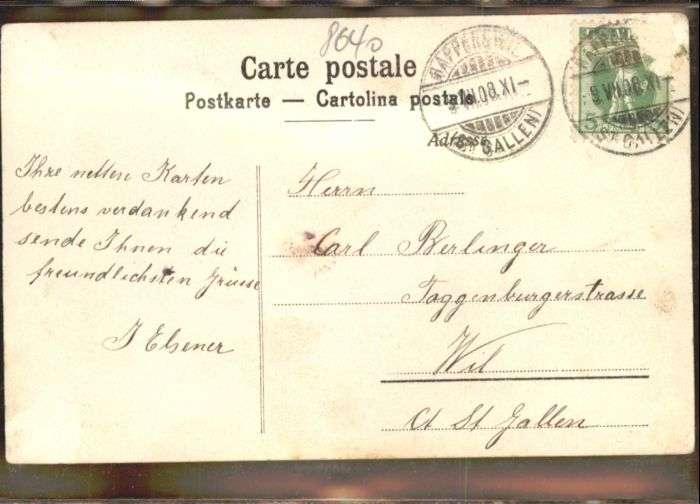 8640
Carte postale
Postkarte — Cartolina postale
Adresse
RAPPERSWIL
9.VII.08.XI-
(ST. GALLEN)
9.VII.08.XI-
(ST. GALLEN)
5
Ihre netten Karten
bestens verdankend
sende Ihnen die
freundlichsten Grüsse
J Elsener
Herrn
Carl Berlinger
Toggenburgerstrasse
Wil
Ct St Gallen